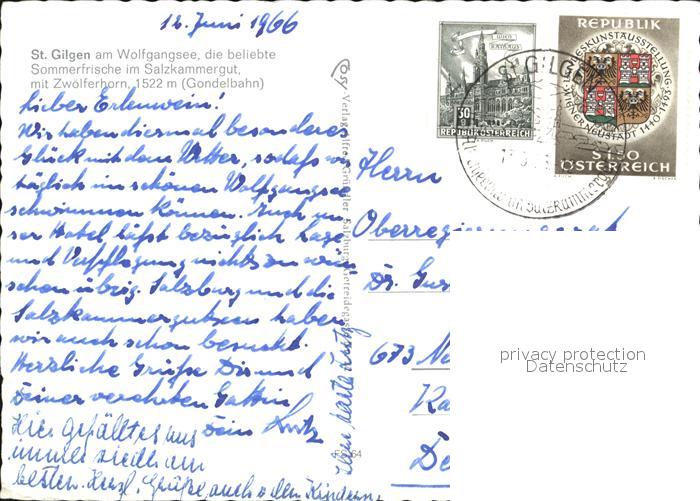 12. Juni 1966
St. Gilgen am Wolfgangsee, die beliebte
Sommerfrische im Salzkammergut,
mit Zwölferhorn, 1522 m (Gondelbahn)
Lieber Erlenwein!
Wir haben diesmal besonderes
Glück mit dem Wetter, sodass wir
täglich im schönen Wolfgangsee
schwimmen können. Auch un-
ser Hotel läßt bezüglich Lage
und Verpflegung nichts zu wün-
schen übrig. Salzburg und die
Salzkammergutseen haben
wir auch schon besucht.
Herzliche Grüße Dir und
Deiner verehrten Gattin
Dein
Hier gefällt es uns
immer wieder am
besten. Herzl. Grüße auch den Kindern,
Ihre
WIEN
RATHAUS
30 g
REPUBLIK ÖSTERREICH
REPUBLIK
KUNSTAUSSTELLUNG
WIENER NEUSTADT 1440-1493
S 1.50
ÖSTERREICH
ST. GILGEN
Herrn
Oberregierungsrat
Dr.
673
privacy protection
Datenschutz